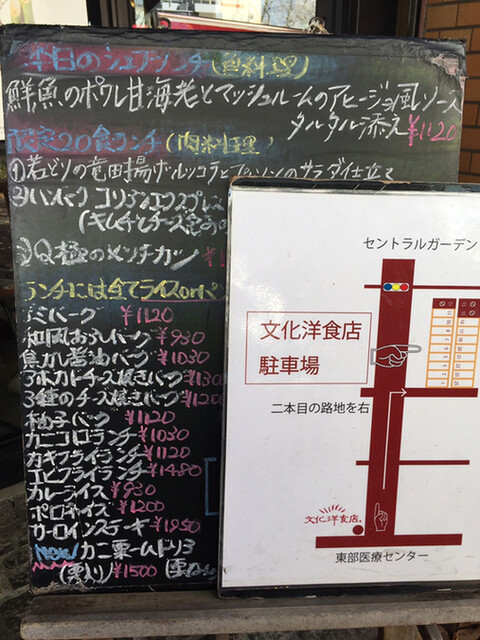 本日のシェフランチ(魚料理)
鮮魚のポワレ甘海老とマッシュルームのアヒージョ風ソース
タルタル添え ¥1120
限定20食ランチ(肉料理)
①若どりの竜田揚げルッコラと
のサラダ仕立て
(キムチとチーズ
メンチカツ
ランチには全てライスorパン
デミバーグ ¥1120
和風おろしバーグ ¥930
焦がし醤油バーグ ¥1030
アボカドチーズ焼きバーグ ¥1300
3種のチーズ焼きバーグ ¥1200
柚子バーグ ¥1120
カニコロランチ ¥1030
カキフライランチ ¥1120
エビフライランチ ¥1480
カレーライス ¥930
ボロネイズ ¥1200
サーロインステーキ ¥1850
New カニ栗ームドリア
(栗入り) ¥1500
セントラルガーデン
文化洋食店
駐車場
二本目の路地を右
文化洋食店。
東部医療センター